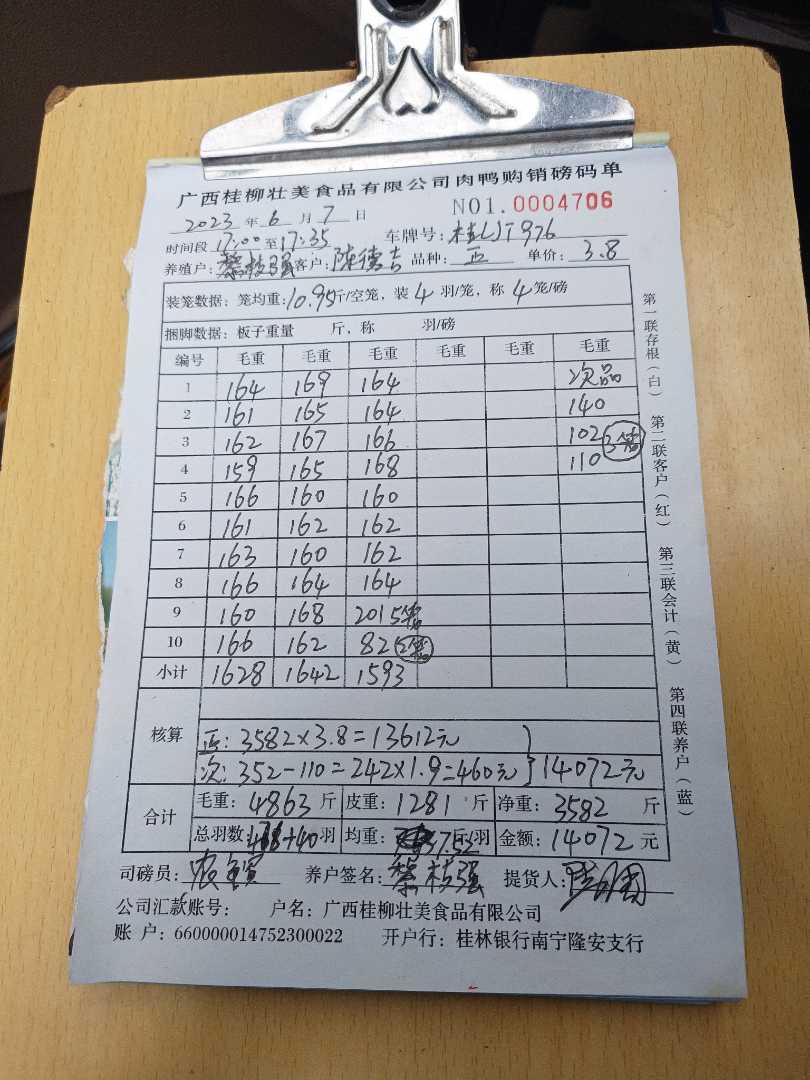 广西桂柳壮美食品有限公司肉鸭购销磅码单
2023 年 6 月 7 日 NO1.0004706
时间段 17:00 至 17:35 车牌号: 976
养殖户: 强 客户: 陈德吉 品种: 正 单价: 3.8
装笼数据: 笼均重: 10.95 斤/空笼, 装 4 羽/笼, 称 4 笼/磅
捆脚数据: 板子重量 斤, 称 羽/磅
编号 毛重 毛重 毛重 毛重 毛重 毛重
1 164 169 164 次品
2 161 165 164 140
3 162 167 166 102 3笼
4 159 165 168 110
5 166 160 160
6 161 162 162
7 163 160 162
8 166 164 164
9 160 168 201 5笼
10 166 162 82 2笼
小计 1628 1642 1593
核算
正: 3582×3.8=13612元
次: 352-110=242×1.9=460元 } 14072元
合计 毛重: 4863 斤 皮重: 1281 斤 净重: 3582 斤
总羽数: +40 羽 均重: 7.52 斤/羽 金额: 14072 元
司磅员: 养户签名: 强 提货人:
公司汇款账号: 户名: 广西桂柳壮美食品有限公司
账 户: 660000014752300022 开户行: 桂林银行南宁隆安支行
第一联存根(白) 第二联客户(红) 第三联会计(黄) 第四联养户(蓝)